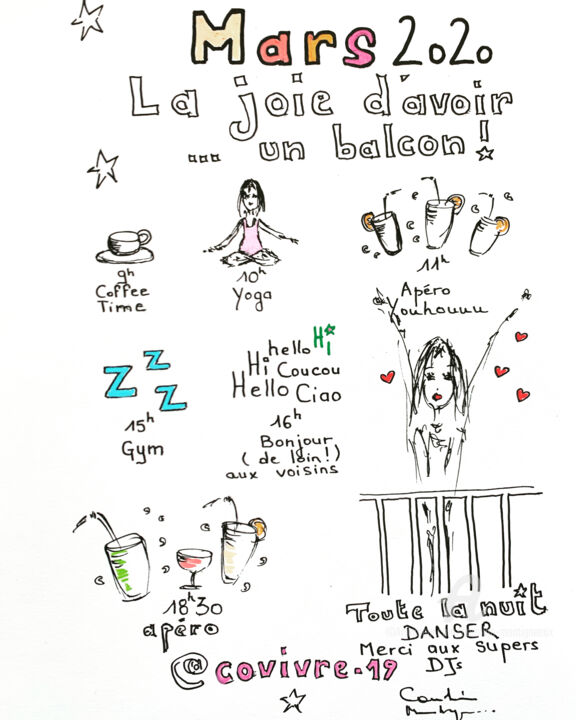 Mars 2020
La joie d'avoir
... un balcon!
9h
Coffee
Time
10h
Yoga
11h
Apéro
Youhouuu
Z Z Z
15h
Gym
hello Hi
Hi Coucou
Hello Ciao
16h
Bonjour
(de loin!)
aux voisins
18h30
apéro
Toute la nuit
DANSER
Merci aux supers
DJs
@covivre.19